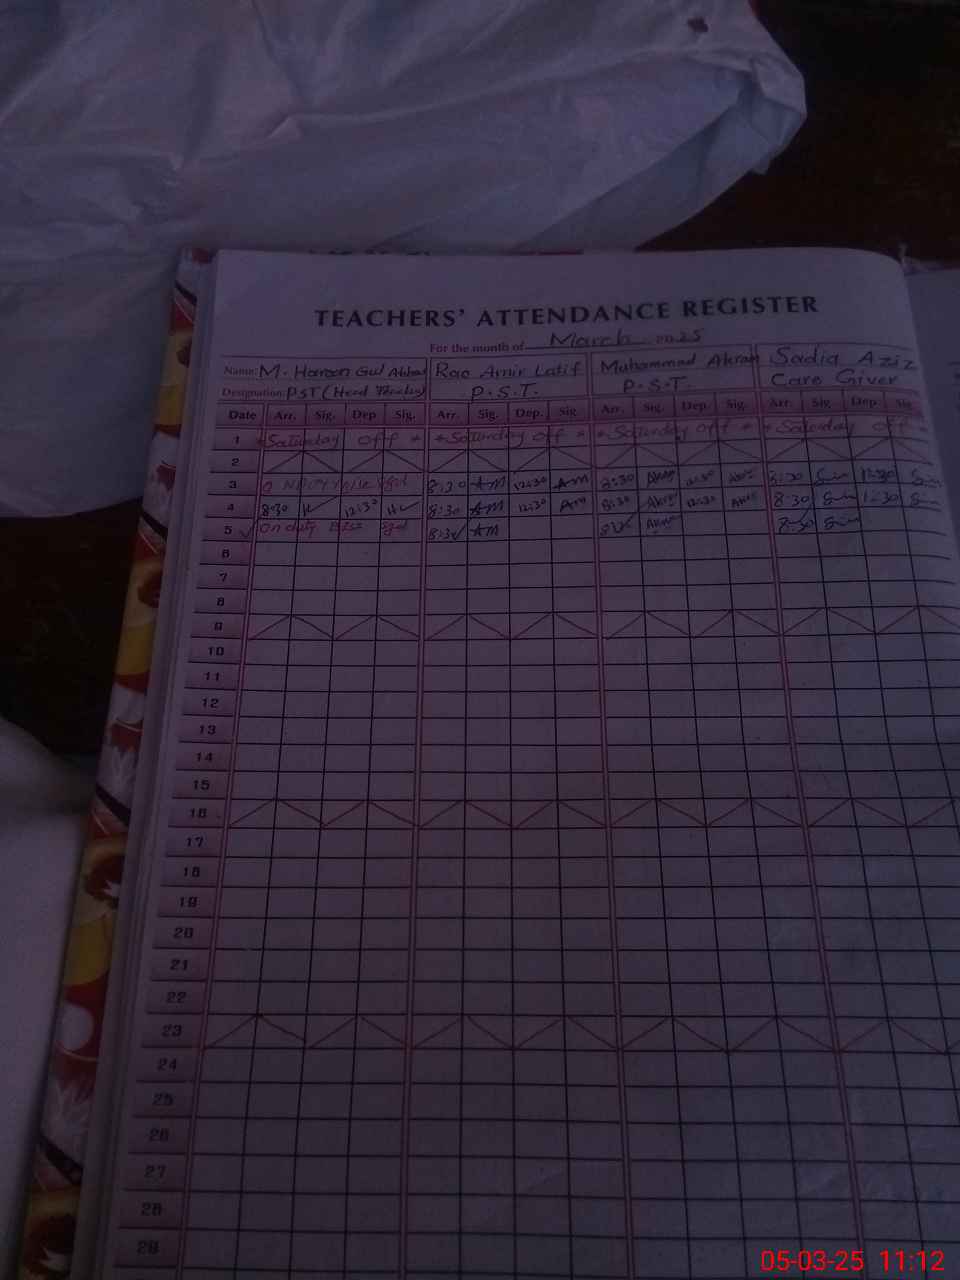 TEACHERS' ATTENDANCE REGISTER
For the month of March 2025
Name: M. Haroon Gul Rao Amir Latif Muhammad Akram Sadia Aziz
Designation: PST (Head Teacher) P.S.T. P.S.T. Care Giver
Date Arr. Sig. Dep Sig. Arr. Sig. Dep. Sig. Arr. Sig. Dep. Sig. Arr. Sig. Dep. Sig.
1 * Saturday off * * Saturday off * * Saturday off * * Saturday off *
2
3 8:30 AM 12:30 AM 8:30 12:30 8:30 12:30
4 8:30 12:30 8:30 AM 12:30 8:30 12:30 8:30 12:30
5 On duty 8:30 AM 8:30 8:30
6
7
8
9
10
11
12
13
14
15
16
17
18
19
20
21
22
23
24
25
26
27
28
29
05-03-25 11:12